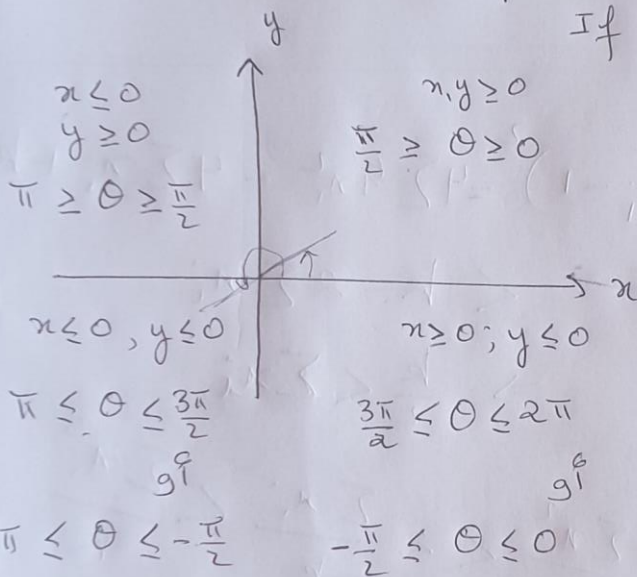 y
If
x ≤ 0
y ≥ 0
π ≥ θ ≥ π/2
x, y ≥ 0
π/2 ≥ θ ≥ 0
x
x ≤ 0 , y ≤ 0
π ≤ θ ≤ 3π/2
π ≤ θ ≤ -π/2
x ≥ 0 ; y ≤ 0
3π/2 ≤ θ ≤ 2π
-π/2 ≤ θ ≤ 0